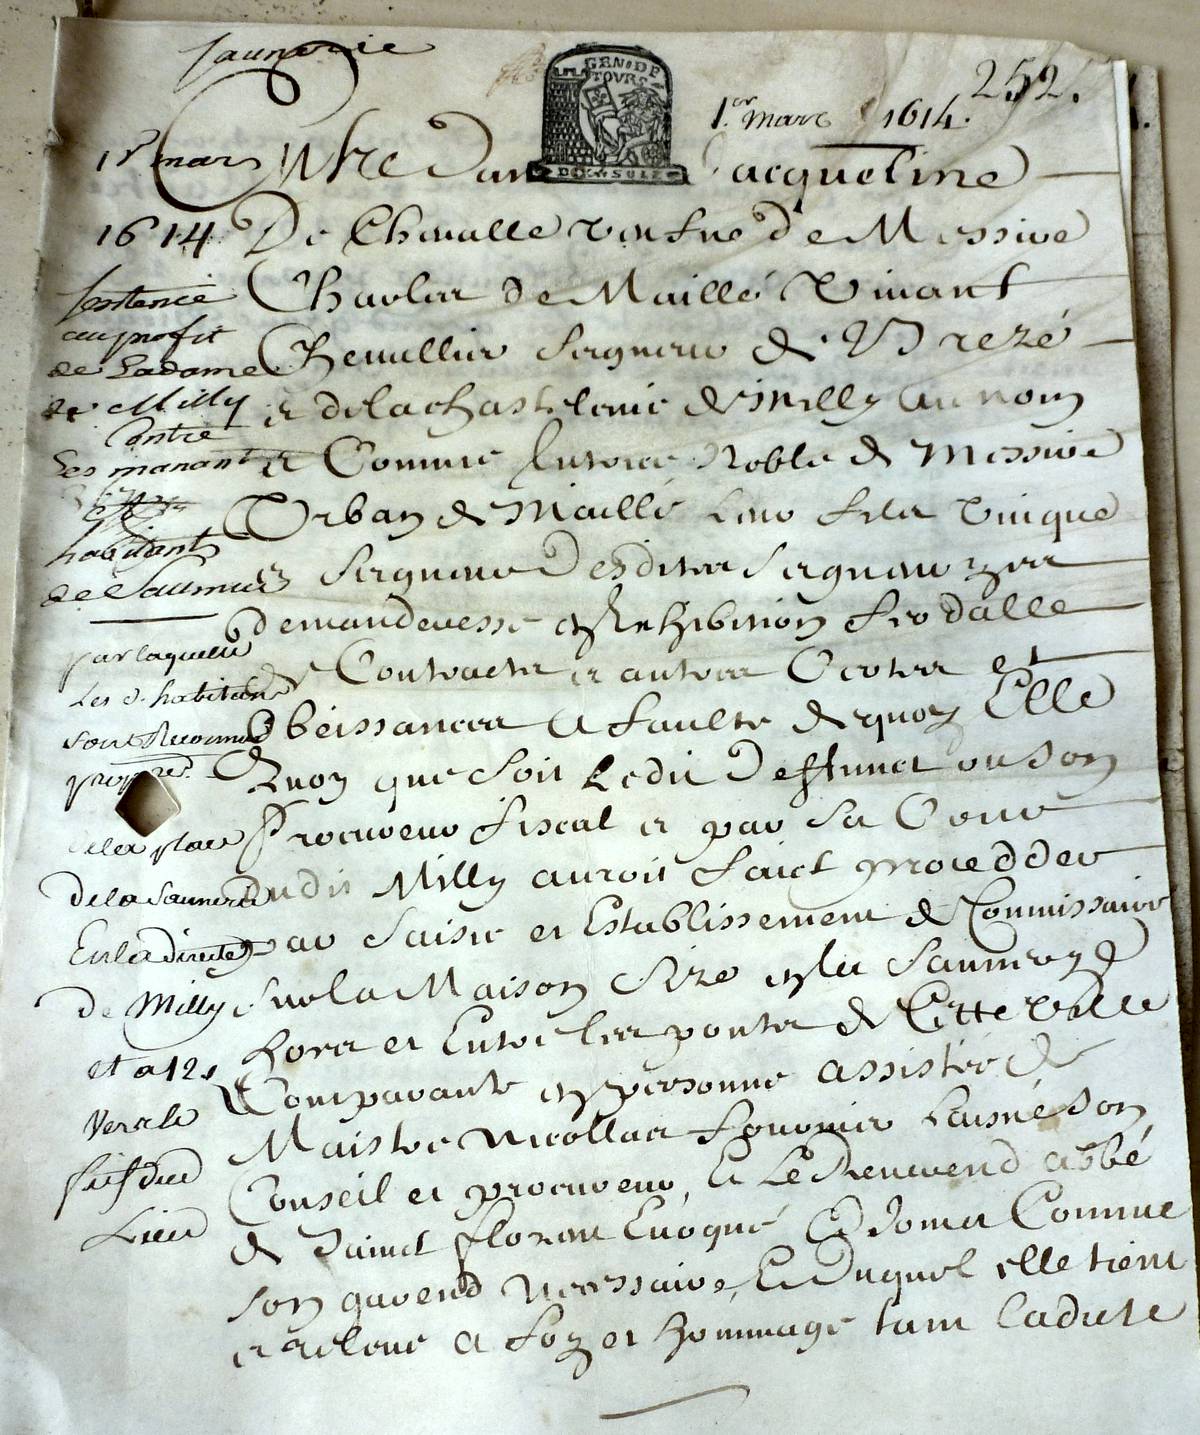 Saunerie
GEN. DE
TOURS
DEUX SOLS
252.
1.er mars 1614.
1er mars
1614
sentence
au profit
de Ladame
de Milly
contre
Les manants
et
habitants
de Saumur
par laquelle
Les d. habitans
sont Reconnus
de la place
de la Saunerie
En la directe
de Milly
et a 12 s
vers le
fief dud
Lieu
Entre Dame Jacqueline
De Thevalle veufue de Messire
Charles de Maillé vivant
Chevallier seigneur de Brezé
et de la chastelenie de Milly au nom
et Comme tutrice Noble de Messire
Urban de Maillé leur filz unique
et seigneur desdites seigneuryes
demanderesse en Exhibition feodalle
de Contractz et autres Actes et
obeissances A faulte de quoy Elle
Quoy que soit Ledit deffunct ou son
Procureur fiscal et par sa Cour
dudit Milly auroit faict procedder
par saisie et Establissement de Commissaire
sur la Maison size en la Saunerye
Lors et Entre les ponts de Cette ville
Comparante en personne assistée de
Maistre Nicollas fournier Laisné son
Conseil et procureur, et Le Reverend abbé
de Sainct florent Evoqué Comme
son garend necessaire, Et Duquel elle tient
et releve A foy et hommage tant ladicte